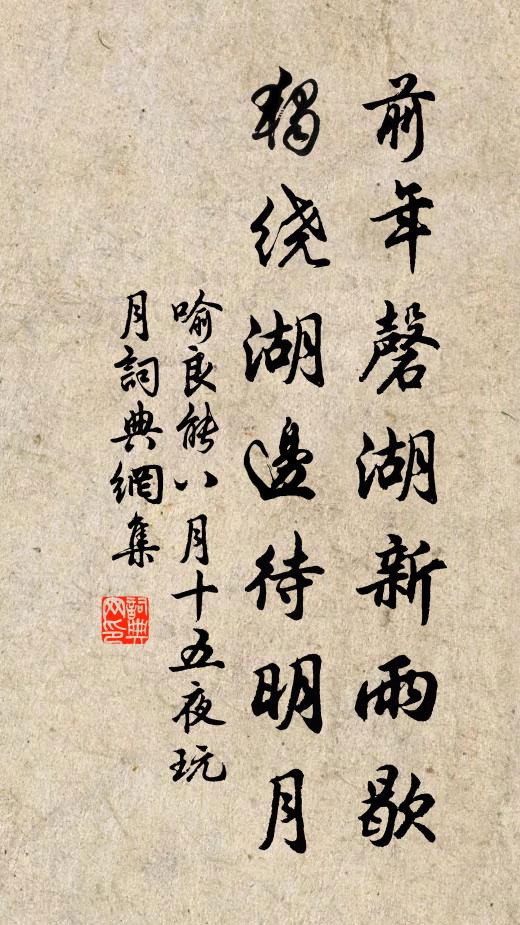 前年磬湖新雨歇
獨绕湖邊待明月
喻良能八月十五夜玩
月詞典網集
詞典网印